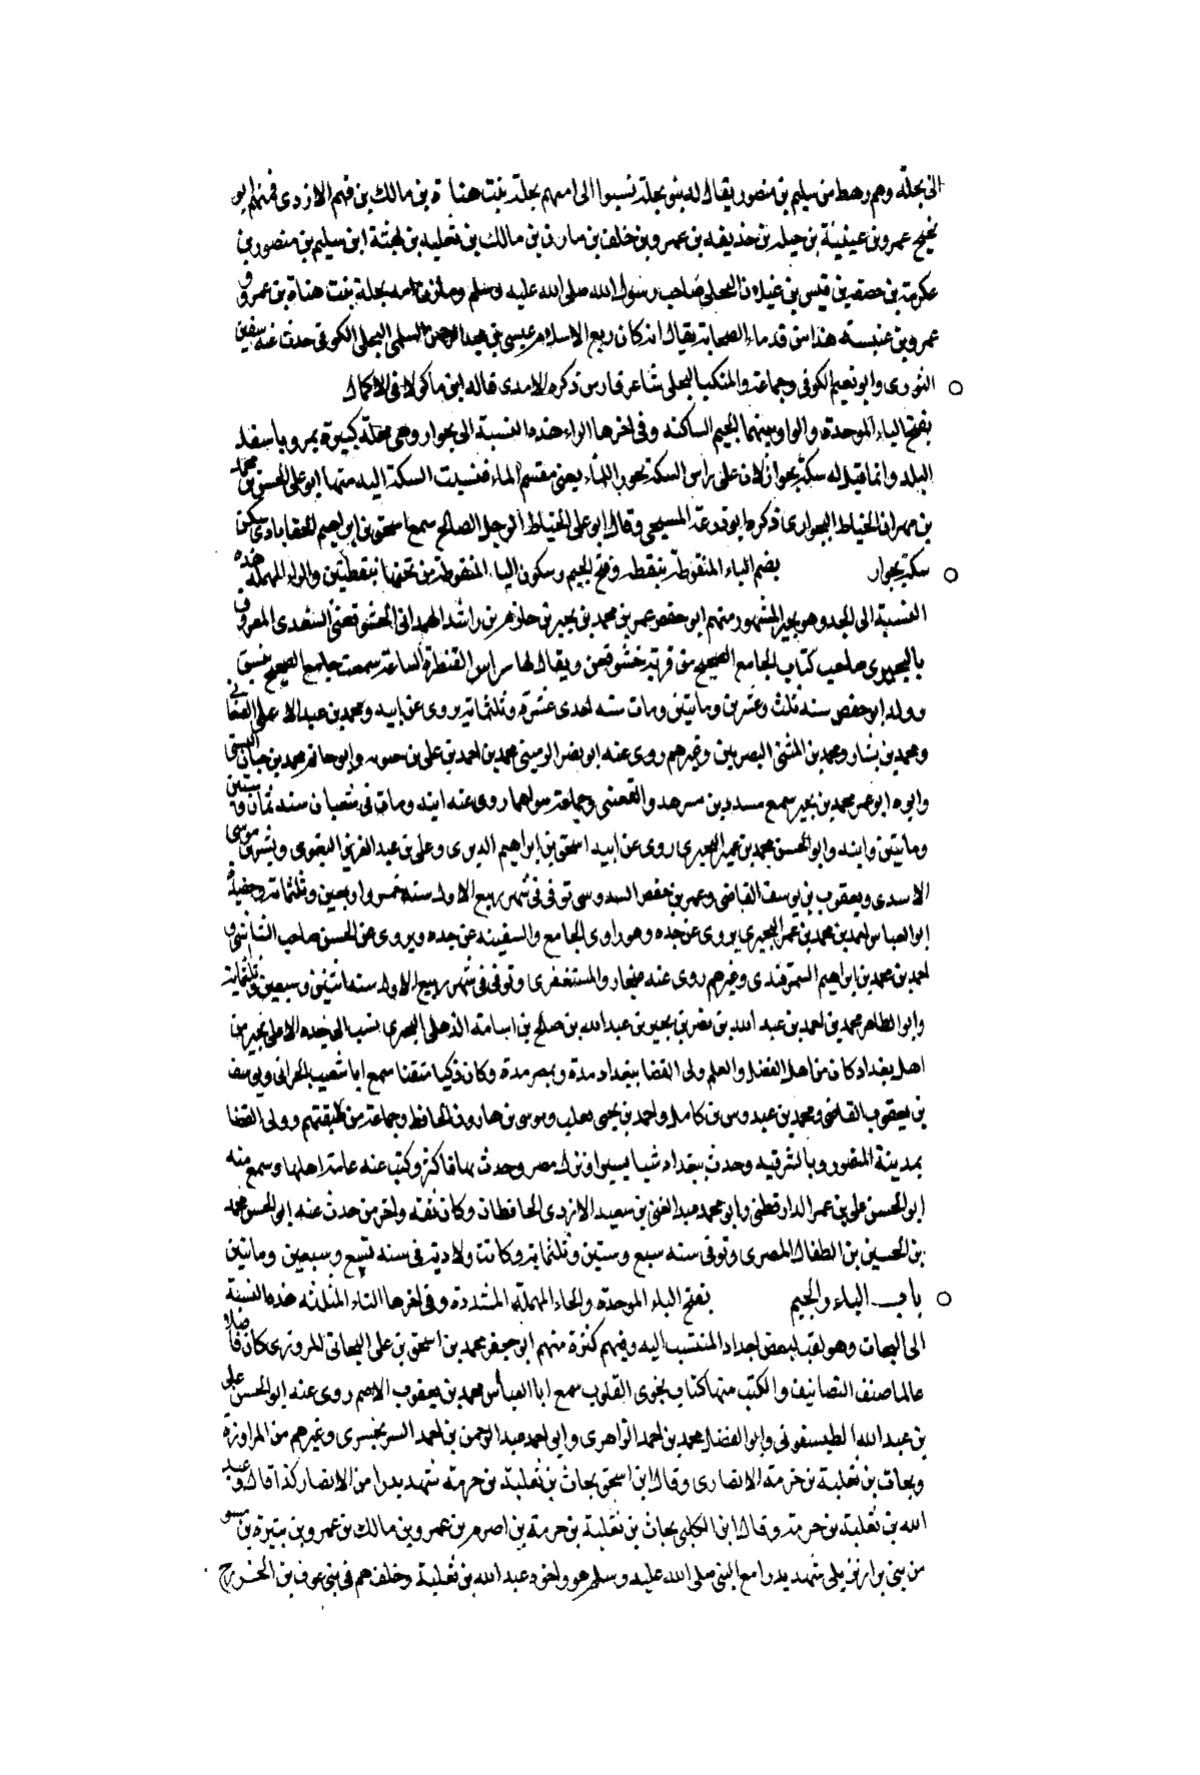 الى بجلة وهم رهط من سليم بن منصور يقال له بنو بجلة نسبوا الى امهم بجلة بنت هناة بن مالك بن فهم الازدى فمنهم ابو
نجيح عمرو بن عيينة بن جبله بن حذيفه بن عمرو بن خلف بن مازن بن مالك بن ثعلبه بن بهثة ابن سليم بن منصور بن
عكرمة بن خصفه بن قيس بن غيلان البجلى صاحب رسول الله صلى الله عليه وسلم ومازن امه بجلة بنت هناة بن عمرو
عمرو بن عنبسة هذا من قدماء الصحابة يقال انه كان ربع الاسلام عيسى بن عبد الرحمن السلمى البجلى الكوفى حدث عنه سفين
الثورى وابو نعيم الكوفى وجماعة والمنكب البجلى شاعر فارس ذكره الامدى قاله ابن ماكولا فى الاكمال
بفتح الباء الموحدة والواو بينهما الجيم الساكنه وفى اخرها الراء هذه النسبة الى بجوار وهى محلة كبيرة بمرو باسفل
البلد وانما قيل له سكة بجوار لان على راس السكة بجوب الماء يعنى مقسم الماء فنسبت السكة اليه منها ابو على الحسن بن محمد
بن مهران الخياط البجوارى ذكره ابو زرعة المسيحى وقال ابو على الخياط الرجل الصالح سمع اسحق بن ابراهيم سكن
سكة بجوار بضم الباء المنقوطة بنقطه وفتح الجيم وسكون الياء المنقوطة من تحتها بنقطتين والراء المهمله هذه
النسبة الى الجد وهو بجير المشهور منهم ابو حفص عمر بن محمد بن بجير بن حازم بن راشد الهمدانى الخشوفغنى السغدى المعروف
بالبجيرى صاحب كتاب الجامع الصحيح من قرية خشوفغن ويقال لها راس القنطرة الساعة سمعت جامع الصحيح
وولد ابو حفص سنه ثلث وعشرين ومايتين ومات سنه احدى عشرة وثلثماية يروى عن ابيه ومحمد بن عبد الاعلى الصنعانى
ومحمد بن بشار ومحمد بن المثنى البصريين وغيرهم روى عنه ابو نصر محمد بن احمد بن على بن وابو حاتم محمد بن حبان البستى
وابوه ابو محمد بن بجير سمع مسدد بن مسرهد والقعنبى وجماعة سواهما روى عنه ابنه ومات فى شعبان سنه ثمان وستين
ومايتين وابنه وابو الحسن محمد بن عمر البجيرى روى عن ابيه اسحق بن ابراهيم الدبرى وعلى بن عبد العزيز البغوى وبشر بن موسى
الاسدى ويعقوب بن يوسف القاضى وعمر بن حفص السدوسى توفى فى شهر ربيع الاول سنه خمس واربعين وثلثماية وحفيده
ابو العباس احمد بن محمد بن عمر البجيرى يروى عن جده وهو راوى الجامع والسفينه عن جده ويروى عن الحسن صاحب الشاشى و
احمد بن محمد بن ابراهيم السمرقندى وغيرهم روى عنه غنجار والمستغفرى وتوفى فى شهر ربيع الاول سنه اثنتين وسبعين وثلثماية
وابو الطاهر محمد بن احمد بن عبد الله بن نصر بن بجير بن عبد الله بن صالح بن اسامة الذهلى البصرى ينسب الى جده الاعلى بجير من
اهل بغداد كان من اهل الفضل والعلم ولى القضا ببغداد مدة وبمصر مدة وكان ذكيا متقنا سمع ابا شعيب الحرانى ويوسف
بن يعقوب القاضى ومحمد بن عبدوس بن كامل واحمد بن يحيى ثعلب وموسى بن هارون الحافظ وجماعة من طبقتهم وولى القضا
بمدينة المنصور وبالشرقيه وحدث ببغداد شيا يسيرا ونزل مصر وحدث بها فاكثر وكتب عنه عامة اهلها وسمع منه
ابو الحسن على بن عمر الدارقطنى وابو محمد عبد الغنى بن سعيد الازدى الحافظان وكان ثقه واخر من حدث عنه ابو الحسن محمد
بن الحسين بن الطفال المصرى وتوفى سنه سبع وستين وثلثماية وكانت ولادته فى سنه تسع وسبعين ومايتين
باب الباء والجيم بفتح الباء الموحدة والحاء المهملة المشددة وفى اخرها الثاء المثلثه هذه النسبة
الى البحاث وهو لقب لبعض اجداد المنتسب اليه وفيهم كثرة منهم ابو جعفر محمد بن اسحق بن على البحاثى المروزى كان فاضلا
عالما صنف التصانيف والكتب منها كتاب نجوى القلوب سمع ابا العباس محمد بن يعقوب الاصم روى عنه ابو الحسن على
بن عبد الله الطيسفونى وابو الفضل محمد بن احمد الزاهرى وابو احمد عبد الرحمن بن احمد السرنجسرى وغيرهم من المراوزة
وبحاث بن ثعلبة بن خزمة الانصارى وقال ابن اسحق بحاث بن ثعلبة بن خزمة شهد بدرا من الانصار كذا قال وعبد
الله بن ثعلبة بن خزمة وقال ابن الكلبى بحاث بن ثعلبة بن خزمة بن اصرم بن عمرو بن مالك بن عمرو بن بتيرة بن
من بنى بلى شهد بدرا مع النبى صلى الله عليه وسلم هو واخوه عبد الله بن ثعلبة وحلفهم فى بنى عوف بن الخزرج